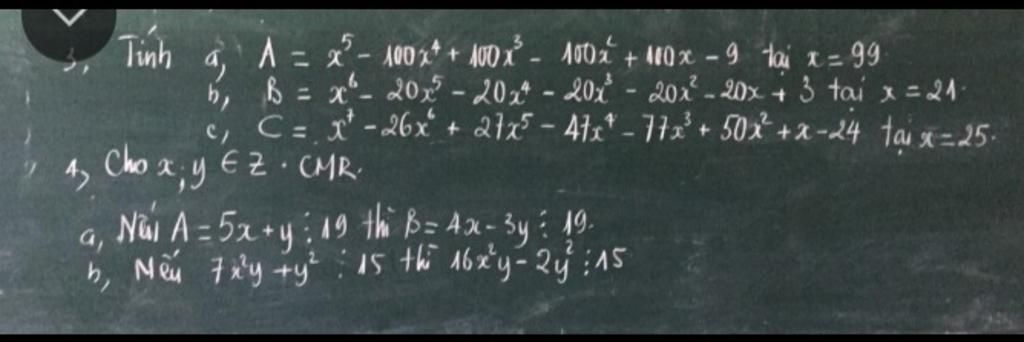 3, Tính a, A = x⁵ - 100x⁴ + 100x³ - 100x² + 100x - 9 tại x = 99
b, B = x⁶ - 20x⁵ - 20x⁴ - 20x³ - 20x² - 20x + 3 tại x = 21.
c, C = x⁷ - 26x⁶ + 27x⁵ - 47x⁴ - 77x³ + 50x² + x - 24 tại x = 25.
4, Cho x; y ∈ Z. CMR.
a, Nếu A = 5x + y ⋮ 19 thì B = 4x - 3y ⋮ 19.
b, Nếu 7x²y + y² ⋮ 15 thì 16x²y - 2y² ⋮ 15